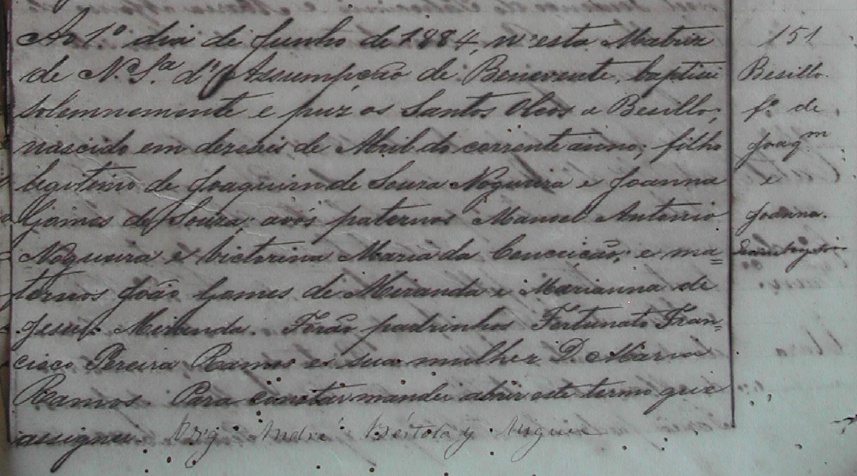 Ao 1º dia de Junho de 1884, n'esta Matriz
de N. Sª d'Assumpção de Benevente, baptisei
solemnemente e puz os Santos Oleos a Besillo,
nascido em dezeseis de Abril do corrente anno, filho
legitimo de Joaquim de Souza Nogueira e Joanna
Gomes de Souza; avós paternos Manoel Antonio
Nogueira e Victorina Maria da Conceição, e ma=
ternos João Gomes de Miranda e Marianna de
Jesus Miranda. Forão padrinhos Fortunato Fran=
cisco Pereira Ramos e sua mulher D. Maria
Ramos. Para constar mandei abrir este termo que
assignei. André
151
Besillo.
fº de
Joaqm
e
Joanna.